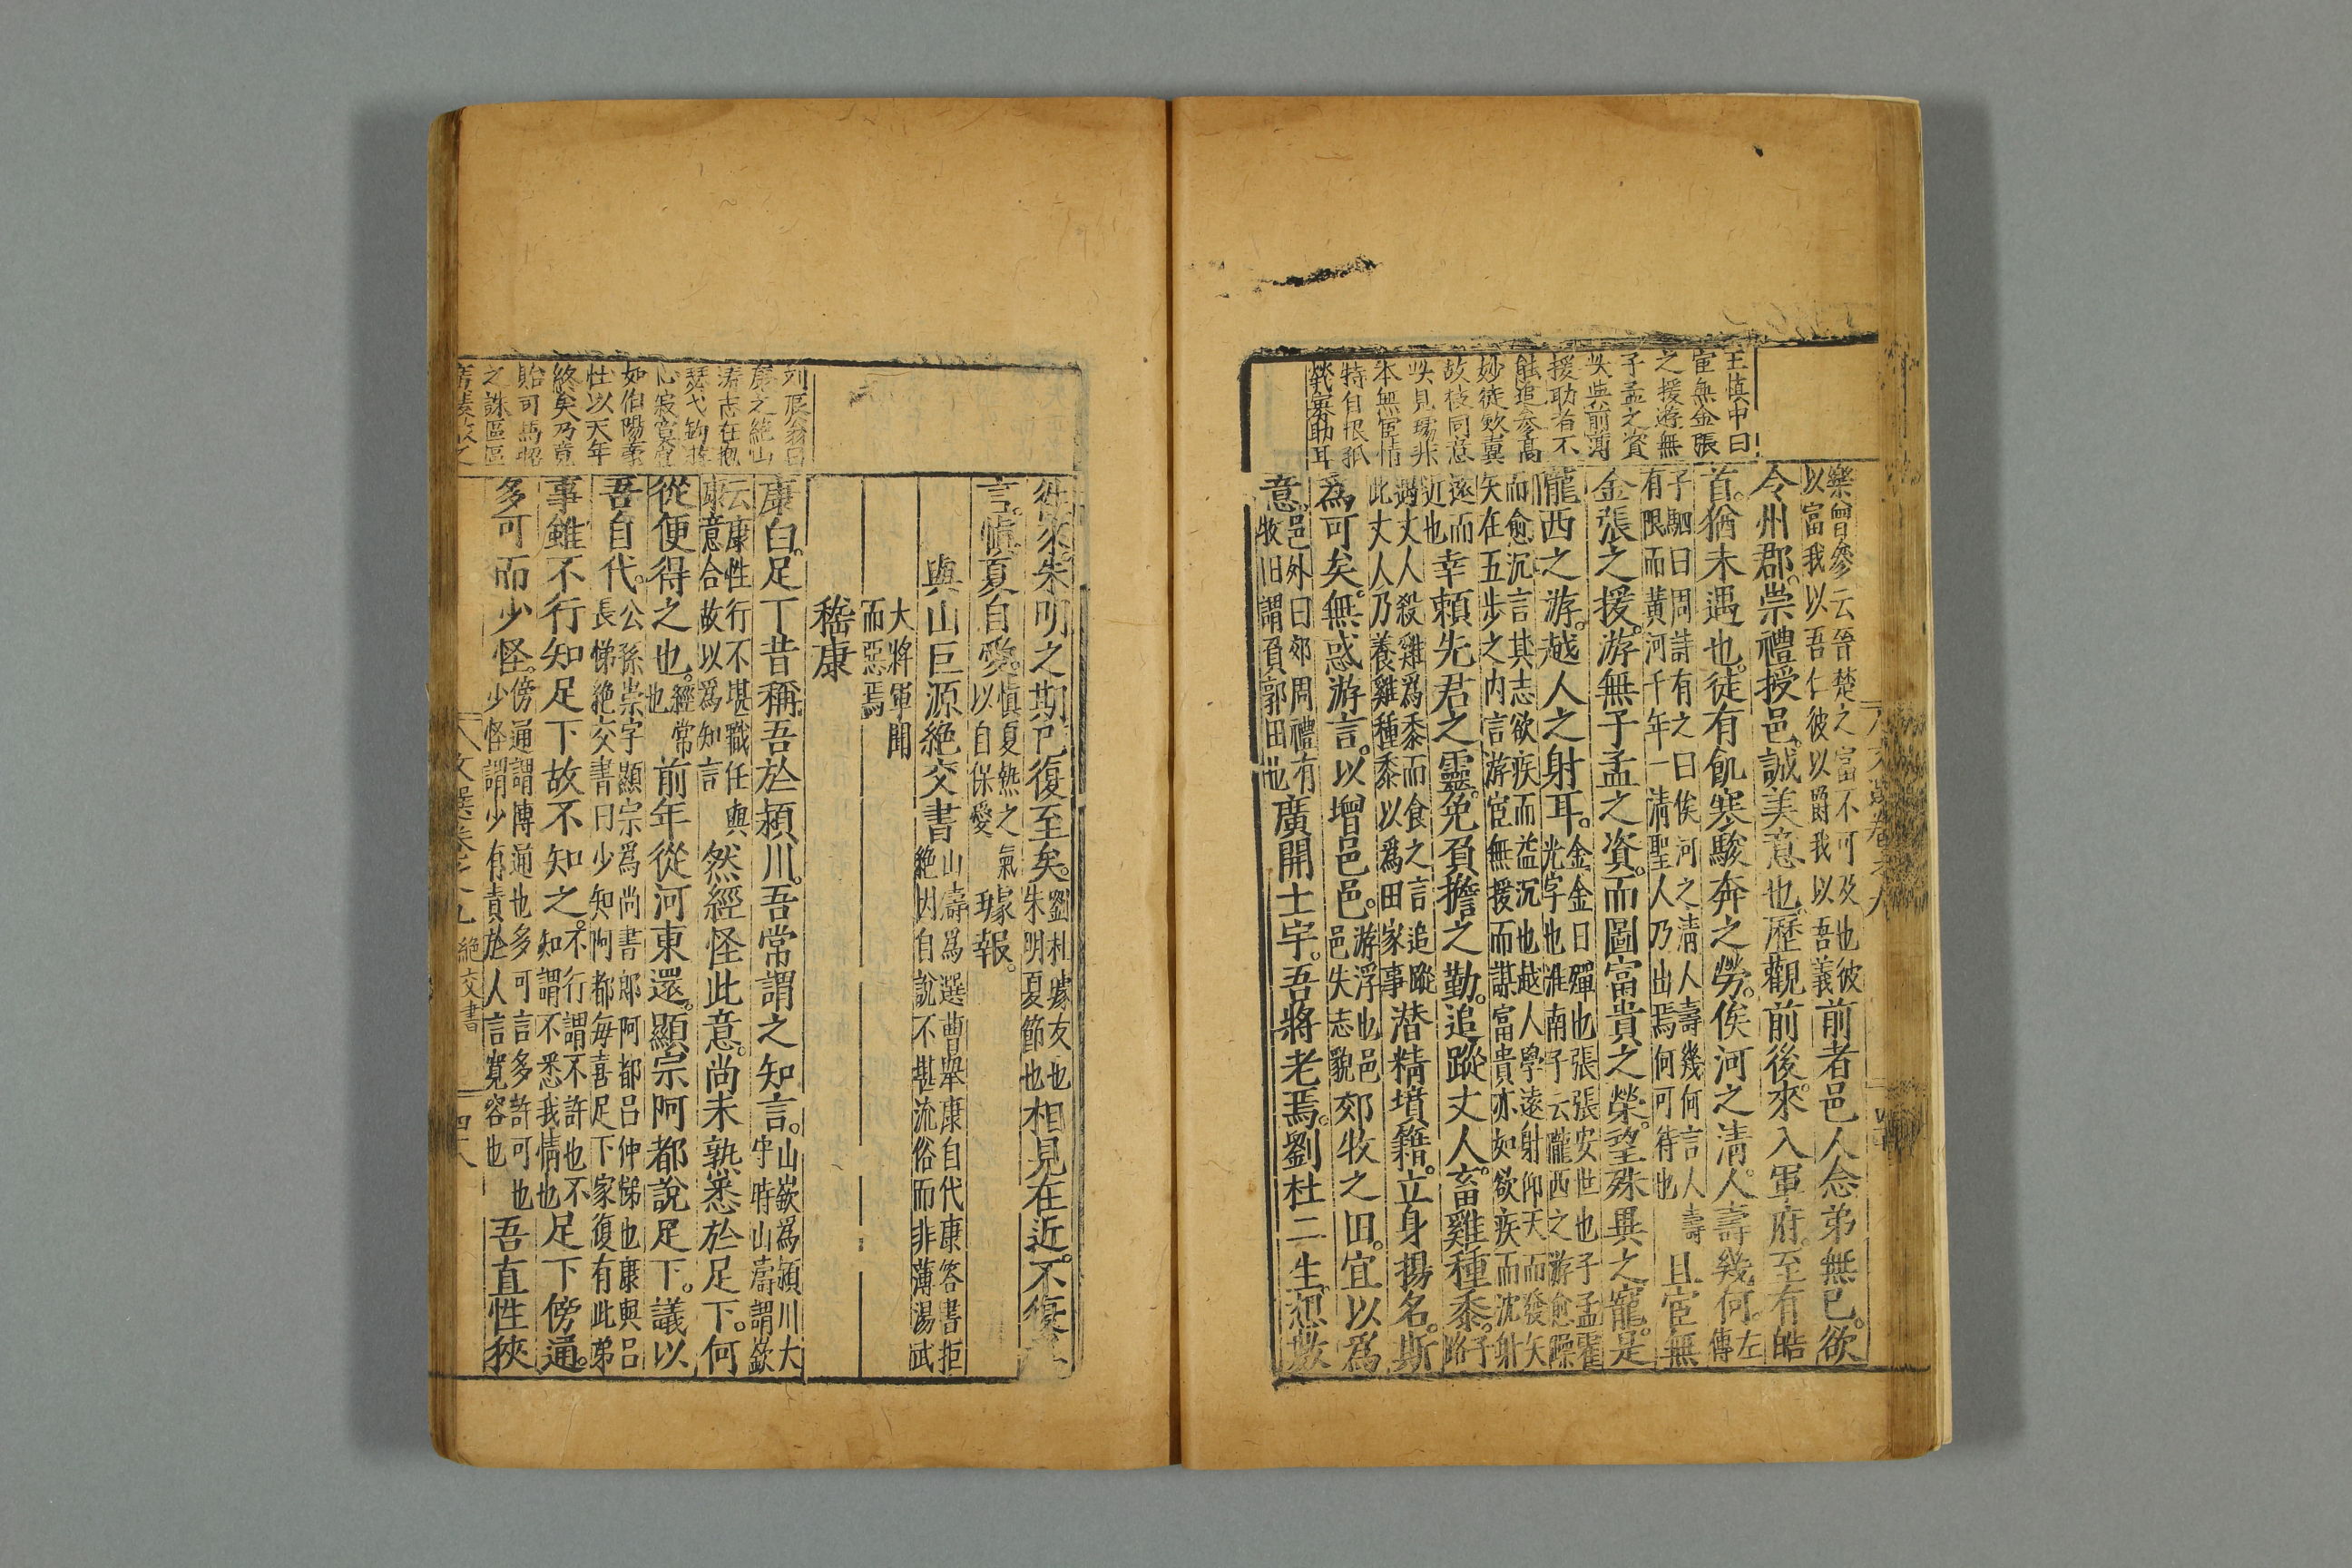 王慎中曰
宦無金張
之援游無
子孟之資
援助者不
能追參高
故枝同意
特自恨孤
煢寡助耳
樂曾參云晉楚之富不可及也彼
以富我以吾仁彼以爵我以吾義
前者邑人念弟無已。欲
令州郡。崇禮授邑。誠美意也。歷觀前後。來入軍府。至有皓
首。猶未遇也。徒有飢寒駿奔之勞。俟河之清。人壽幾何。左
傳
子駟曰周詩有之曰俟河之清人壽幾何言人壽
有限而黃河千年一清聖人乃出焉何可待也
且宦無
金張之援。游無子孟之資。而圖富貴之榮。望殊異之寵。是
隴西之游。越人之射耳。金金日磾也張張安世也子孟霍
光字也淮南子云隴西之游愈躁
而愈沉言其志欲疾而益沉也越人學遠射仰天而發矢
矢在五步之内言游宦無援而謀富貴亦如欲疾而沈射
遠而
近也
幸賴先君之靈。免負擔之勤。追蹤丈人。畜雞種黍。子
路
遇丈人殺雞爲黍而食之言追蹤
此丈人乃養雞種黍以爲田家事
潜精墳籍。立身揚名。斯
為可矣。無惑游言。以增邑邑。游浮也邑
邑失志貌
郊牧之田。宜以為
意。邑外曰郊周禮有
牧田謂負郭田也
廣開土宇。吾將老焉。劉杜二生。想數
康之絶山
濤志在抱
琴弋釣游
心寂寞意
如伯陽蒙
仕以天年
終矣乃竟
貽司馬昭
之誅區區
徃來。朱明之期已復至矣。劉杜璩友也
朱明夏節也
相見在近。不復
言。慎夏自愛。慎夏熱之氣
以自保愛
璩報。
與山巨源絶交書
山濤為選曹舉康自代康答書拒
絶因自說不堪流俗而非薄湯武
大將軍聞
而惡焉
嵇康
康白。足下昔稱吾於潁川。吾常謂之知言。山嶔爲潁川大
守時山濤謂嶔
云康性行不堪職任與
康意合故以為知言
然經怪此意。尚未孰悉於足下。何
從便得之也。經常
也
前年從河東還。顯宗阿都說足下。議以
吾自代。公孫崇字顯宗爲尚書郎阿都吕仲悌也康與吕
長悌絶交書曰少知阿都每喜足下家復有此弟
事雖不行。知足下故不知之。不行謂不許也不
知謂不悉我情也
足下傍通。
多可而少怪。傍通謂博通也多可言多許可也
少怪謂少有責於人言寛容也
吾直性狹
六文選卷之九
絶交書
四六